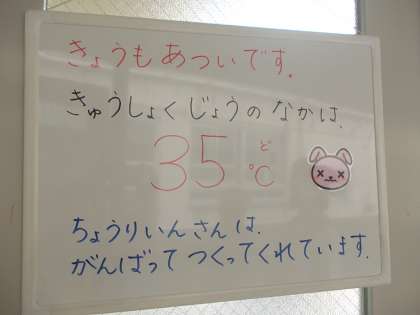 きょうもあついです。
きゅうしょくじょうのなかは、
35℃
ど
ちょうりいんさんは、
がんばってつくってくれています。